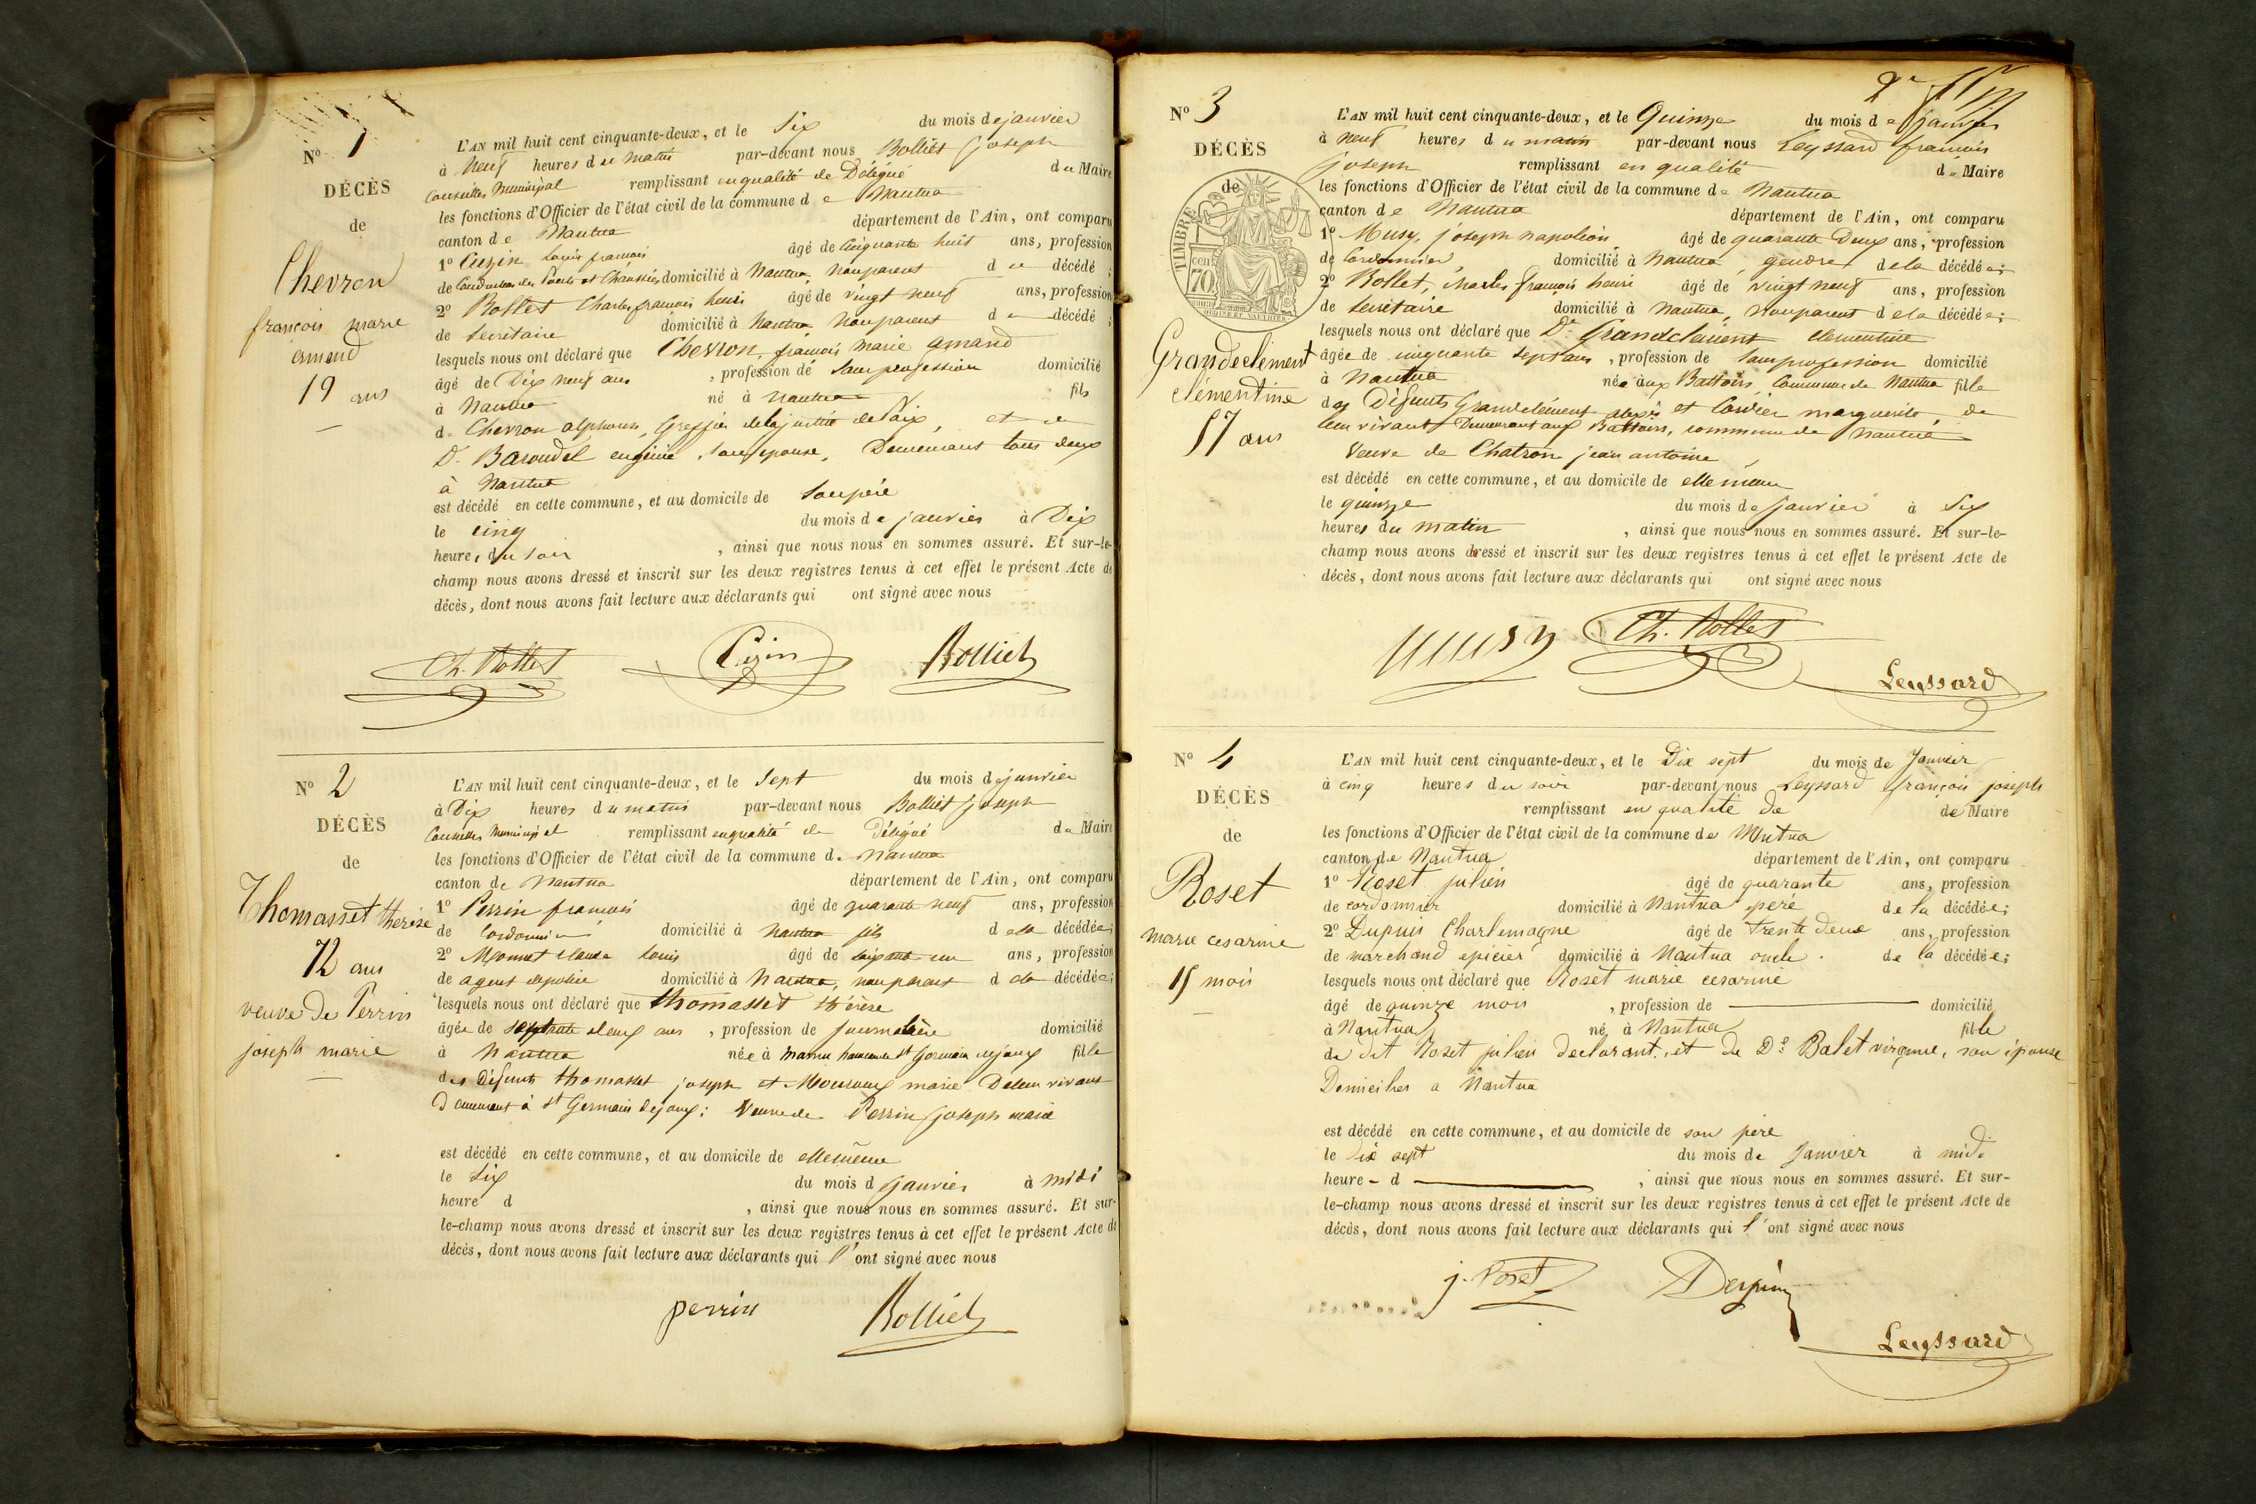 N° 1
DÉCÈS
de
Chevron
françois marie
amand
19 ans
L'AN mil huit cent cinquante-deux, et le Six du mois de janvier
à Neuf heures du matin par-devant nous Bolliet joseph
Conseiller Municipal remplissant en qualité de Délégué du Maire
les fonctions d'Officier de l'état civil de la commune de Nantua
canton de Nantua département de l'Ain, ont comparu
1° Cuzin Louis françois âgé de Cinquante huit ans, profession
de Conducteur des Ponts et Chaussées domicilié à Nantua, non parent du décédé;
2° Rollet Charles françois henri âgé de vingt neuf ans, profession
de Secrétaire domicilié à Nantua non parent du décédé;
lesquels nous ont déclaré que Chevron, françois Marie amand
âgé de Dix neuf ans, profession de Sans profession domicilié
à Nantua né à Nantua fils
de Chevron alphonse, Greffier de la justice de Paix, et de
De. Baroudel eugénie, son epouse, Demeurant tous deux
à Nantua
est décédé en cette commune, et au domicile de Son père
le cinq du mois de janvier à Dix
heures du soir, ainsi que nous nous en sommes assuré. Et sur-le-
champ nous avons dressé et inscrit sur les deux registres tenus à cet effet le présent Acte de
décès, dont nous avons fait lecture aux déclarants qui ont signé avec nous
Ch. Rollet Cuzin Bolliet
N° 2
DÉCÈS
de
Thomasset thérèse
72 ans
veuve de Perrin
joseph marie
L'AN mil huit cent cinquante-deux, et le Sept du mois de janvier
à Dix heures du matin par-devant nous Bolliet joseph
Conseiller Municipal remplissant en qualité de Délégué du Maire
les fonctions d'Officier de l'état civil de la commune de Nantua
canton de Nantua département de l'Ain, ont comparu
1° Perrin françois âgé de quarante neuf ans, profession
de Cordonnier domicilié à Nantua fils de la décédée;
2° Monnet Claude Louis âgé de soixante un ans, profession
de agent de police domicilié à Nantua, non parent de la décédée;
lesquels nous ont déclaré que thomasset thérèse
âgée de septante deux ans, profession de journalière domicilié
à Nantua née à hameau de St Germain de joux fille
des défunts thomasset joseph et marie De leur vivant
Demeurant à St Germain de joux; Veuve de Perrin joseph marie
est décédé en cette commune, et au domicile de elle même
le Six du mois d janvier à midi
heure d , ainsi que nous nous en sommes assuré. Et sur-
le-champ nous avons dressé et inscrit sur les deux registres tenus à cet effet le présent Acte de
décès, dont nous avons fait lecture aux déclarants qui l'ont signé avec nous
perrin Bolliet
N° 3
DÉCÈS
de
TIMBRE
70 cen
Grandclément
clémentine
57 ans
L'AN mil huit cent cinquante-deux, et le Quinze du mois de janvier
à neuf heures du matin par-devant nous Leyssard françois
joseph remplissant en qualité de Maire
les fonctions d'Officier de l'état civil de la commune de Nantua
canton de Nantua département de l'Ain, ont comparu
1° Musy, joseph napoléon âgé de quarante Deux ans, profession
de Cordonnier, domicilié à Nantua, gendre de la décédée;
2° Rollet, charles françois henri âgé de vingt neuf ans, profession
de Secrétaire domicilié à Nantua, non parent de la décédée;
lesquels nous ont déclaré que De Grandclément clémentine
âgée de cinquante sept ans, profession de Sans profession domicilié
à Nantua née aux Battoirs, Commune de Nantua fille
des Défunts Grandclément alexis et Cordier marguerite, de
leur vivant Demeurant aux Battoirs, commune de Nantua
Veuve de Chatron jean antoine
est décédé en cette commune, et au domicile de elle même
le quinze du mois de janvier à Six
heures du matin, ainsi que nous nous en sommes assuré. Et sur-le-
champ nous avons dressé et inscrit sur les deux registres tenus à cet effet le présent Acte de
décès, dont nous avons fait lecture aux déclarants qui ont signé avec nous
Musy Ch. Rollet
Leyssard
N° 4
DÉCÈS
de
Roset
marie cesarine
15 mois
L'AN mil huit cent cinquante-deux, et le Dix sept du mois de Janvier
à cinq heures du soir par-devant nous Leyssard françois joseph
remplissant en qualité de de Maire
les fonctions d'Officier de l'état civil de la commune de Nantua
canton de Nantua département de l'Ain, ont comparu
1° Roset julien âgé de quarante ans, profession
de cordonnier domicilié à Nantua pere de la décédée;
2° Dupuis Charlemagne âgé de trente deux ans, profession
de marchand epicier domicilié à Nantua oncle. de la décédée;
lesquels nous ont déclaré que Roset marie cesarine
âgé de quinze mois, profession de domicilié
à Nantua né à Nantua fille
de dit Roset julien declarant, et de De Balet virginie, son épouse
Domiciliés a Nantua
est décédé en cette commune, et au domicile de son pere
le dix sept du mois de Janvier à midi
heure - d ; ainsi que nous nous en sommes assuré. Et sur-
le-champ nous avons dressé et inscrit sur les deux registres tenus à cet effet le présent Acte de
décès, dont nous avons fait lecture aux déclarants qui l'ont signé avec nous
j. Roset
Leyssard